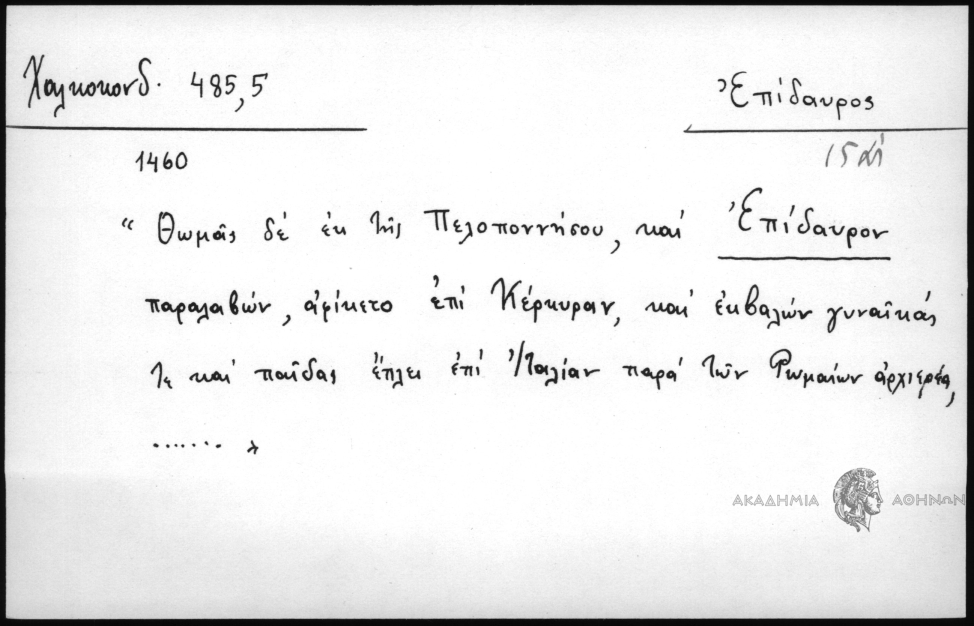 Χαλκοκονδ. 485,5
Ἐπίδαυρος
1460
15 αἰ
“ Θωμᾶς δέ ἐκ τῆς Πελοποννήσου, καί Ἐπίδαυρον
παραλαβών, ἀφίκετο ἐπί Κέρκυραν, καί ἐκβαλών γυναῖκάς
τε καί παῖδας ἔπλει ἐπί Ἰταλίαν παρά τῶν Ρωμαίων ἀρχιερέα,
....... »
ΑΚΑΔΗΜΙΑ ΑΘΗΝΩΝ